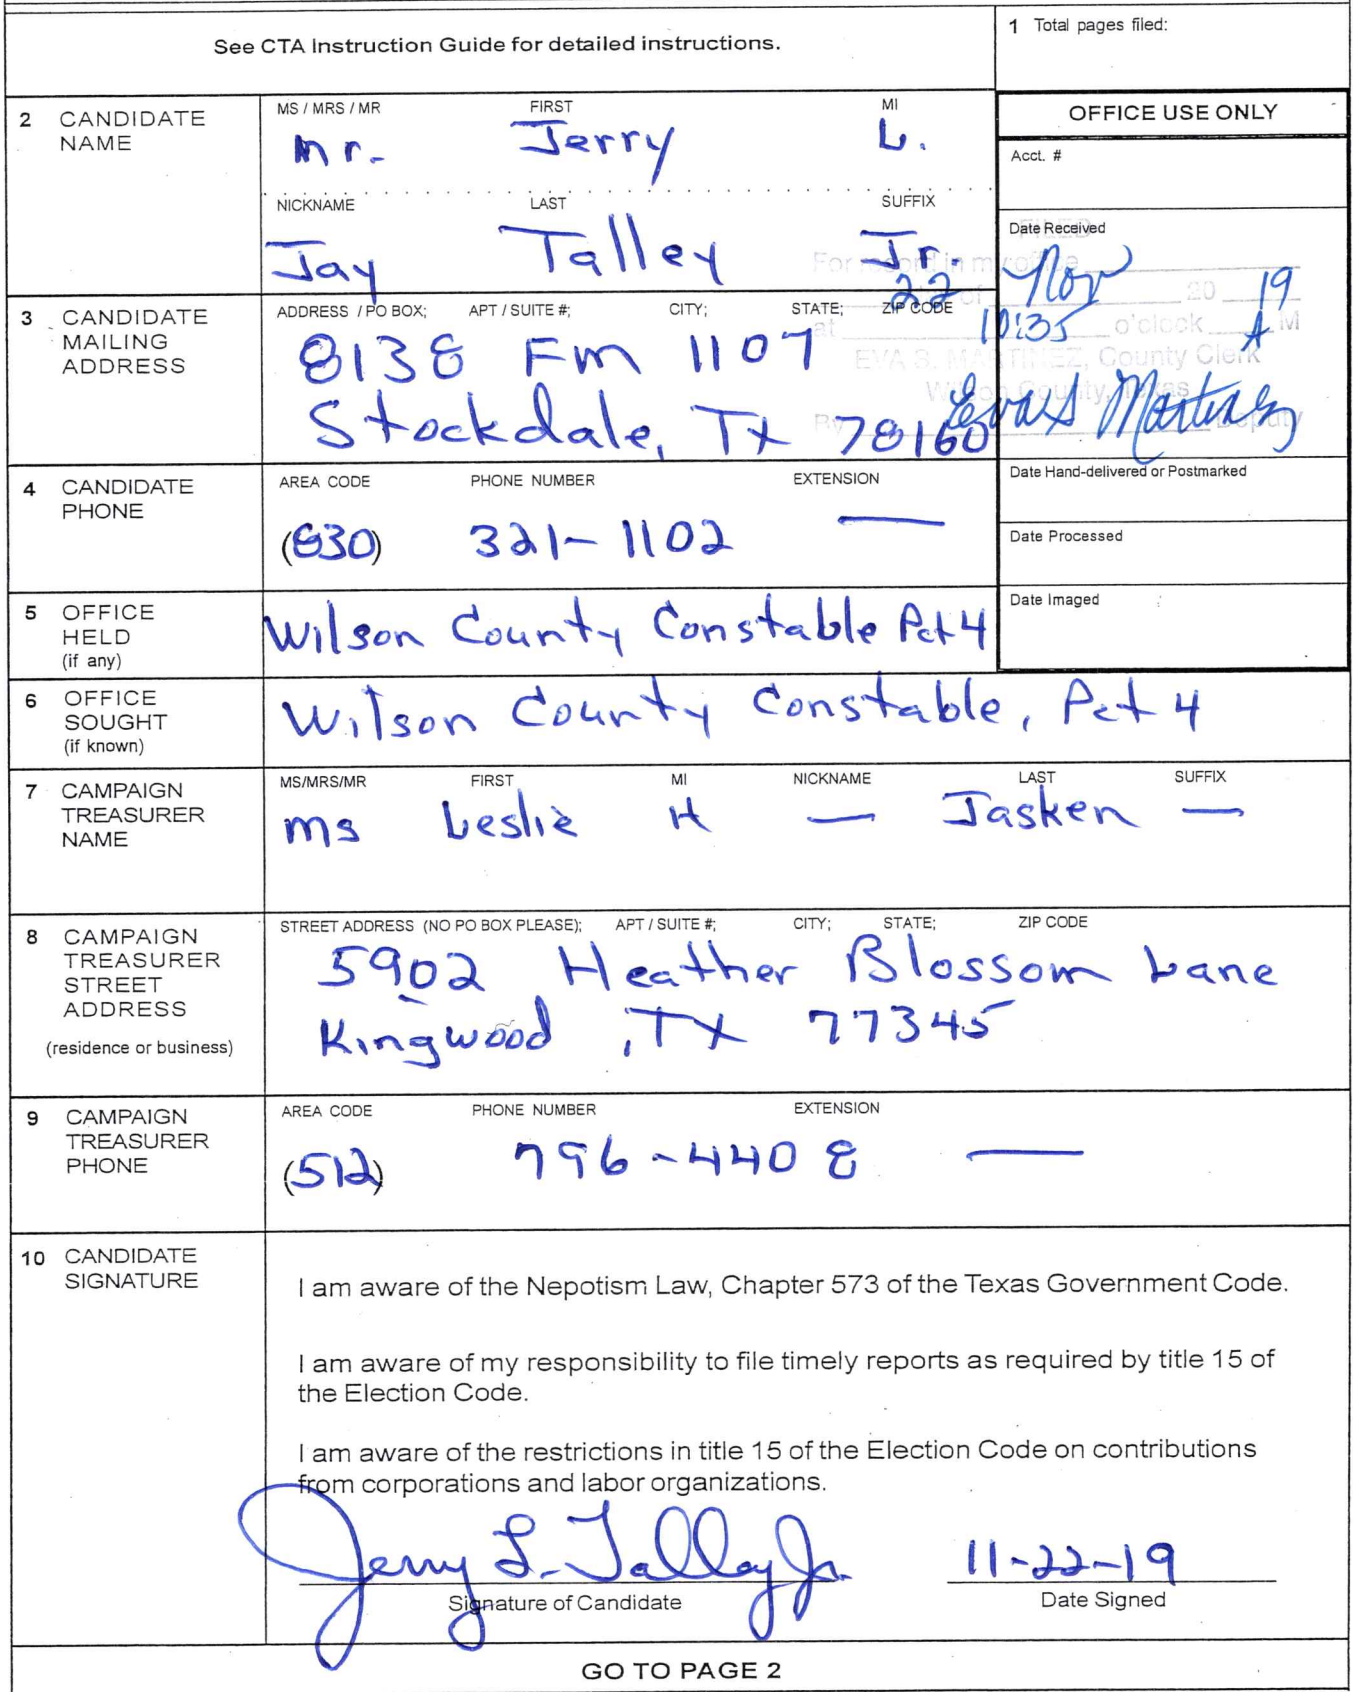 See CTA Instruction Guide for detailed instructions.
1 Total pages filed:
2 CANDIDATE NAME
MS / MRS / MR FIRST MI
Mr. Jerry L.
NICKNAME LAST SUFFIX
Jay Talley Jr.
OFFICE USE ONLY
Acct. #
Date Received
FILED
For record in my office
22 of Nov 20 19
at 10:35 o'clock A M
EVA S. MARTINEZ, County Clerk
Wilson County, Texas
By Eva S Martinez Deputy
Date Hand-delivered or Postmarked
Date Processed
Date Imaged
3 CANDIDATE MAILING ADDRESS
ADDRESS / PO BOX; APT / SUITE #; CITY; STATE; ZIP CODE
8138 FM 1107
Stockdale, TX 78160
4 CANDIDATE PHONE
AREA CODE PHONE NUMBER EXTENSION
(830) 321-1102 —
5 OFFICE HELD (if any)
Wilson County Constable Pct 4
6 OFFICE SOUGHT (if known)
Wilson County Constable, Pct 4
7 CAMPAIGN TREASURER NAME
MS/MRS/MR FIRST MI NICKNAME LAST SUFFIX
Ms Leslie H — Jasken —
8 CAMPAIGN TREASURER STREET ADDRESS (residence or business)
STREET ADDRESS (NO PO BOX PLEASE); APT / SUITE #; CITY; STATE; ZIP CODE
5902 Heather Blossom Lane
Kingwood, TX 77345
9 CAMPAIGN TREASURER PHONE
AREA CODE PHONE NUMBER EXTENSION
(512) 796-4408 —
10 CANDIDATE SIGNATURE
I am aware of the Nepotism Law, Chapter 573 of the Texas Government Code.
I am aware of my responsibility to file timely reports as required by title 15 of
the Election Code.
I am aware of the restrictions in title 15 of the Election Code on contributions
from corporations and labor organizations.
Jerry L. Talley Jr. 11-22-19
Signature of Candidate Date Signed
GO TO PAGE 2